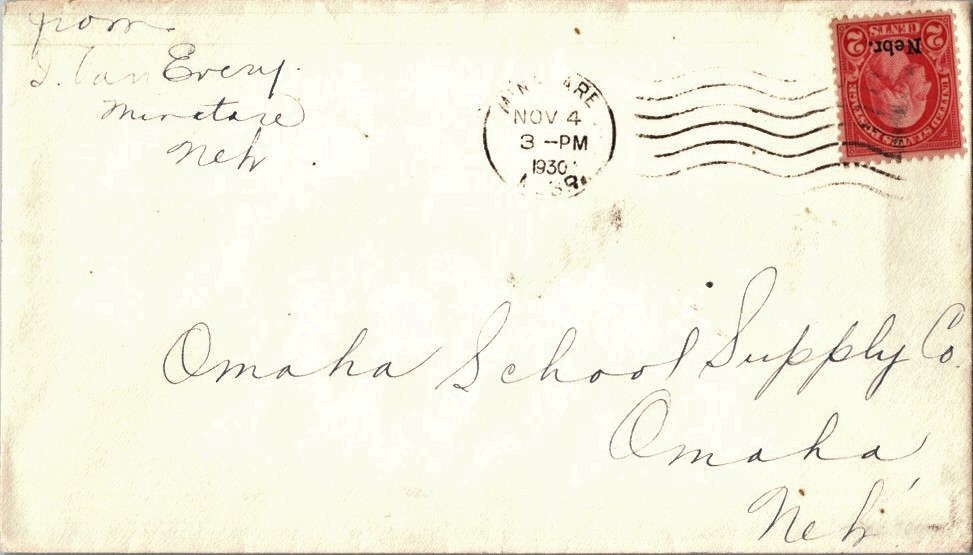 from
J. Van Every.
Minatare
Neb.
MINATARE
NOV 4
3 -PM
1930
NEBR.
2 CENTS 2
Nebr.
Omaha School Supply Co.
Omaha
Neb.